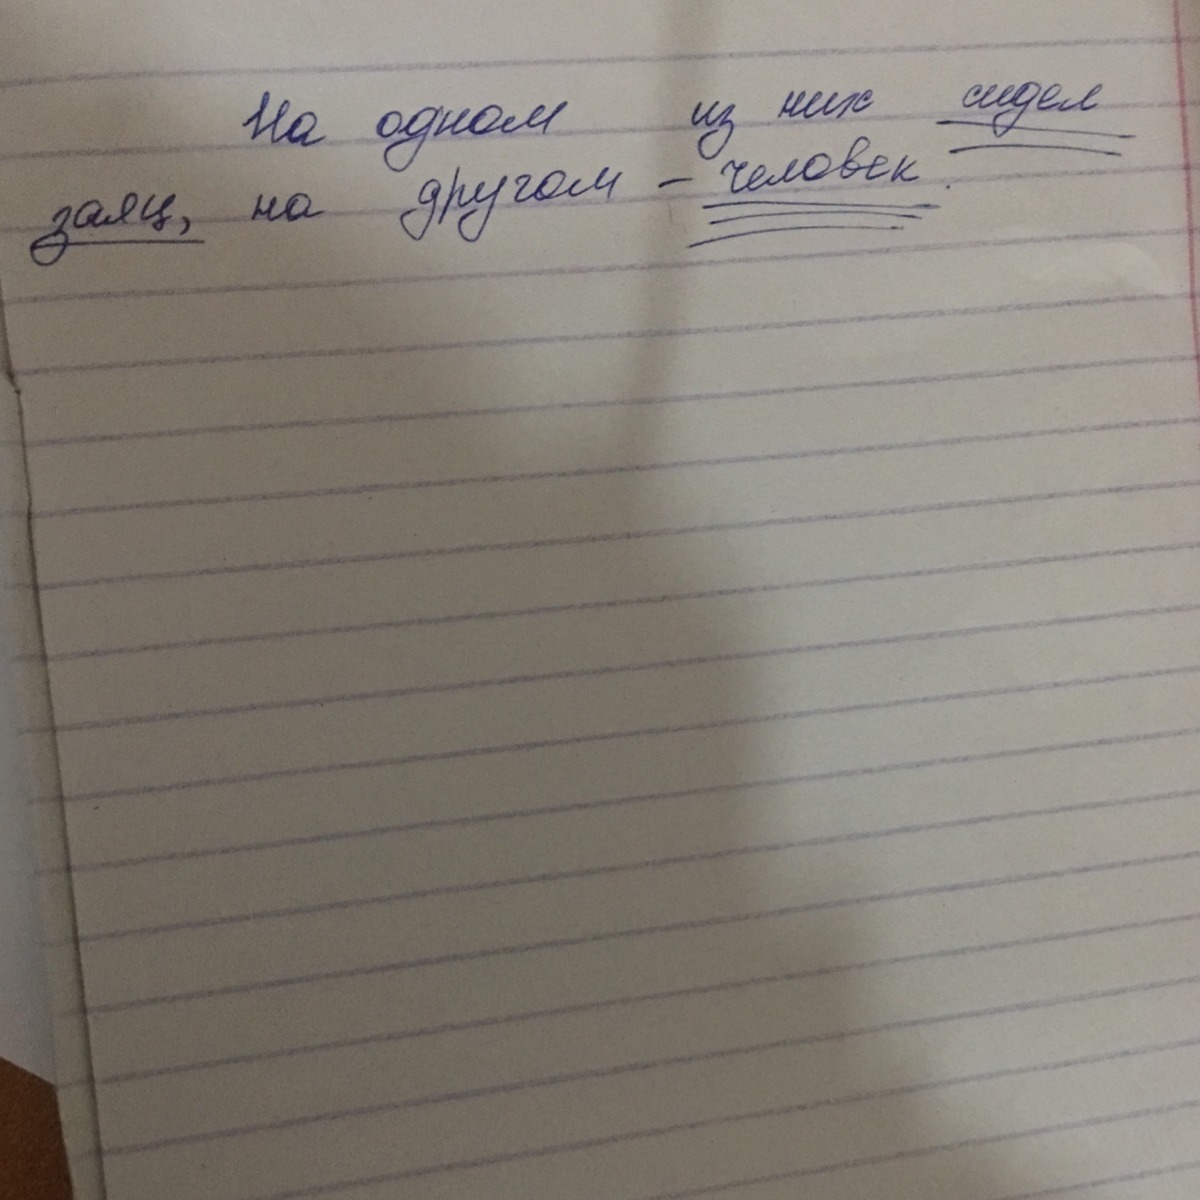 На одном из них сидел
заяц, на другом – человек.